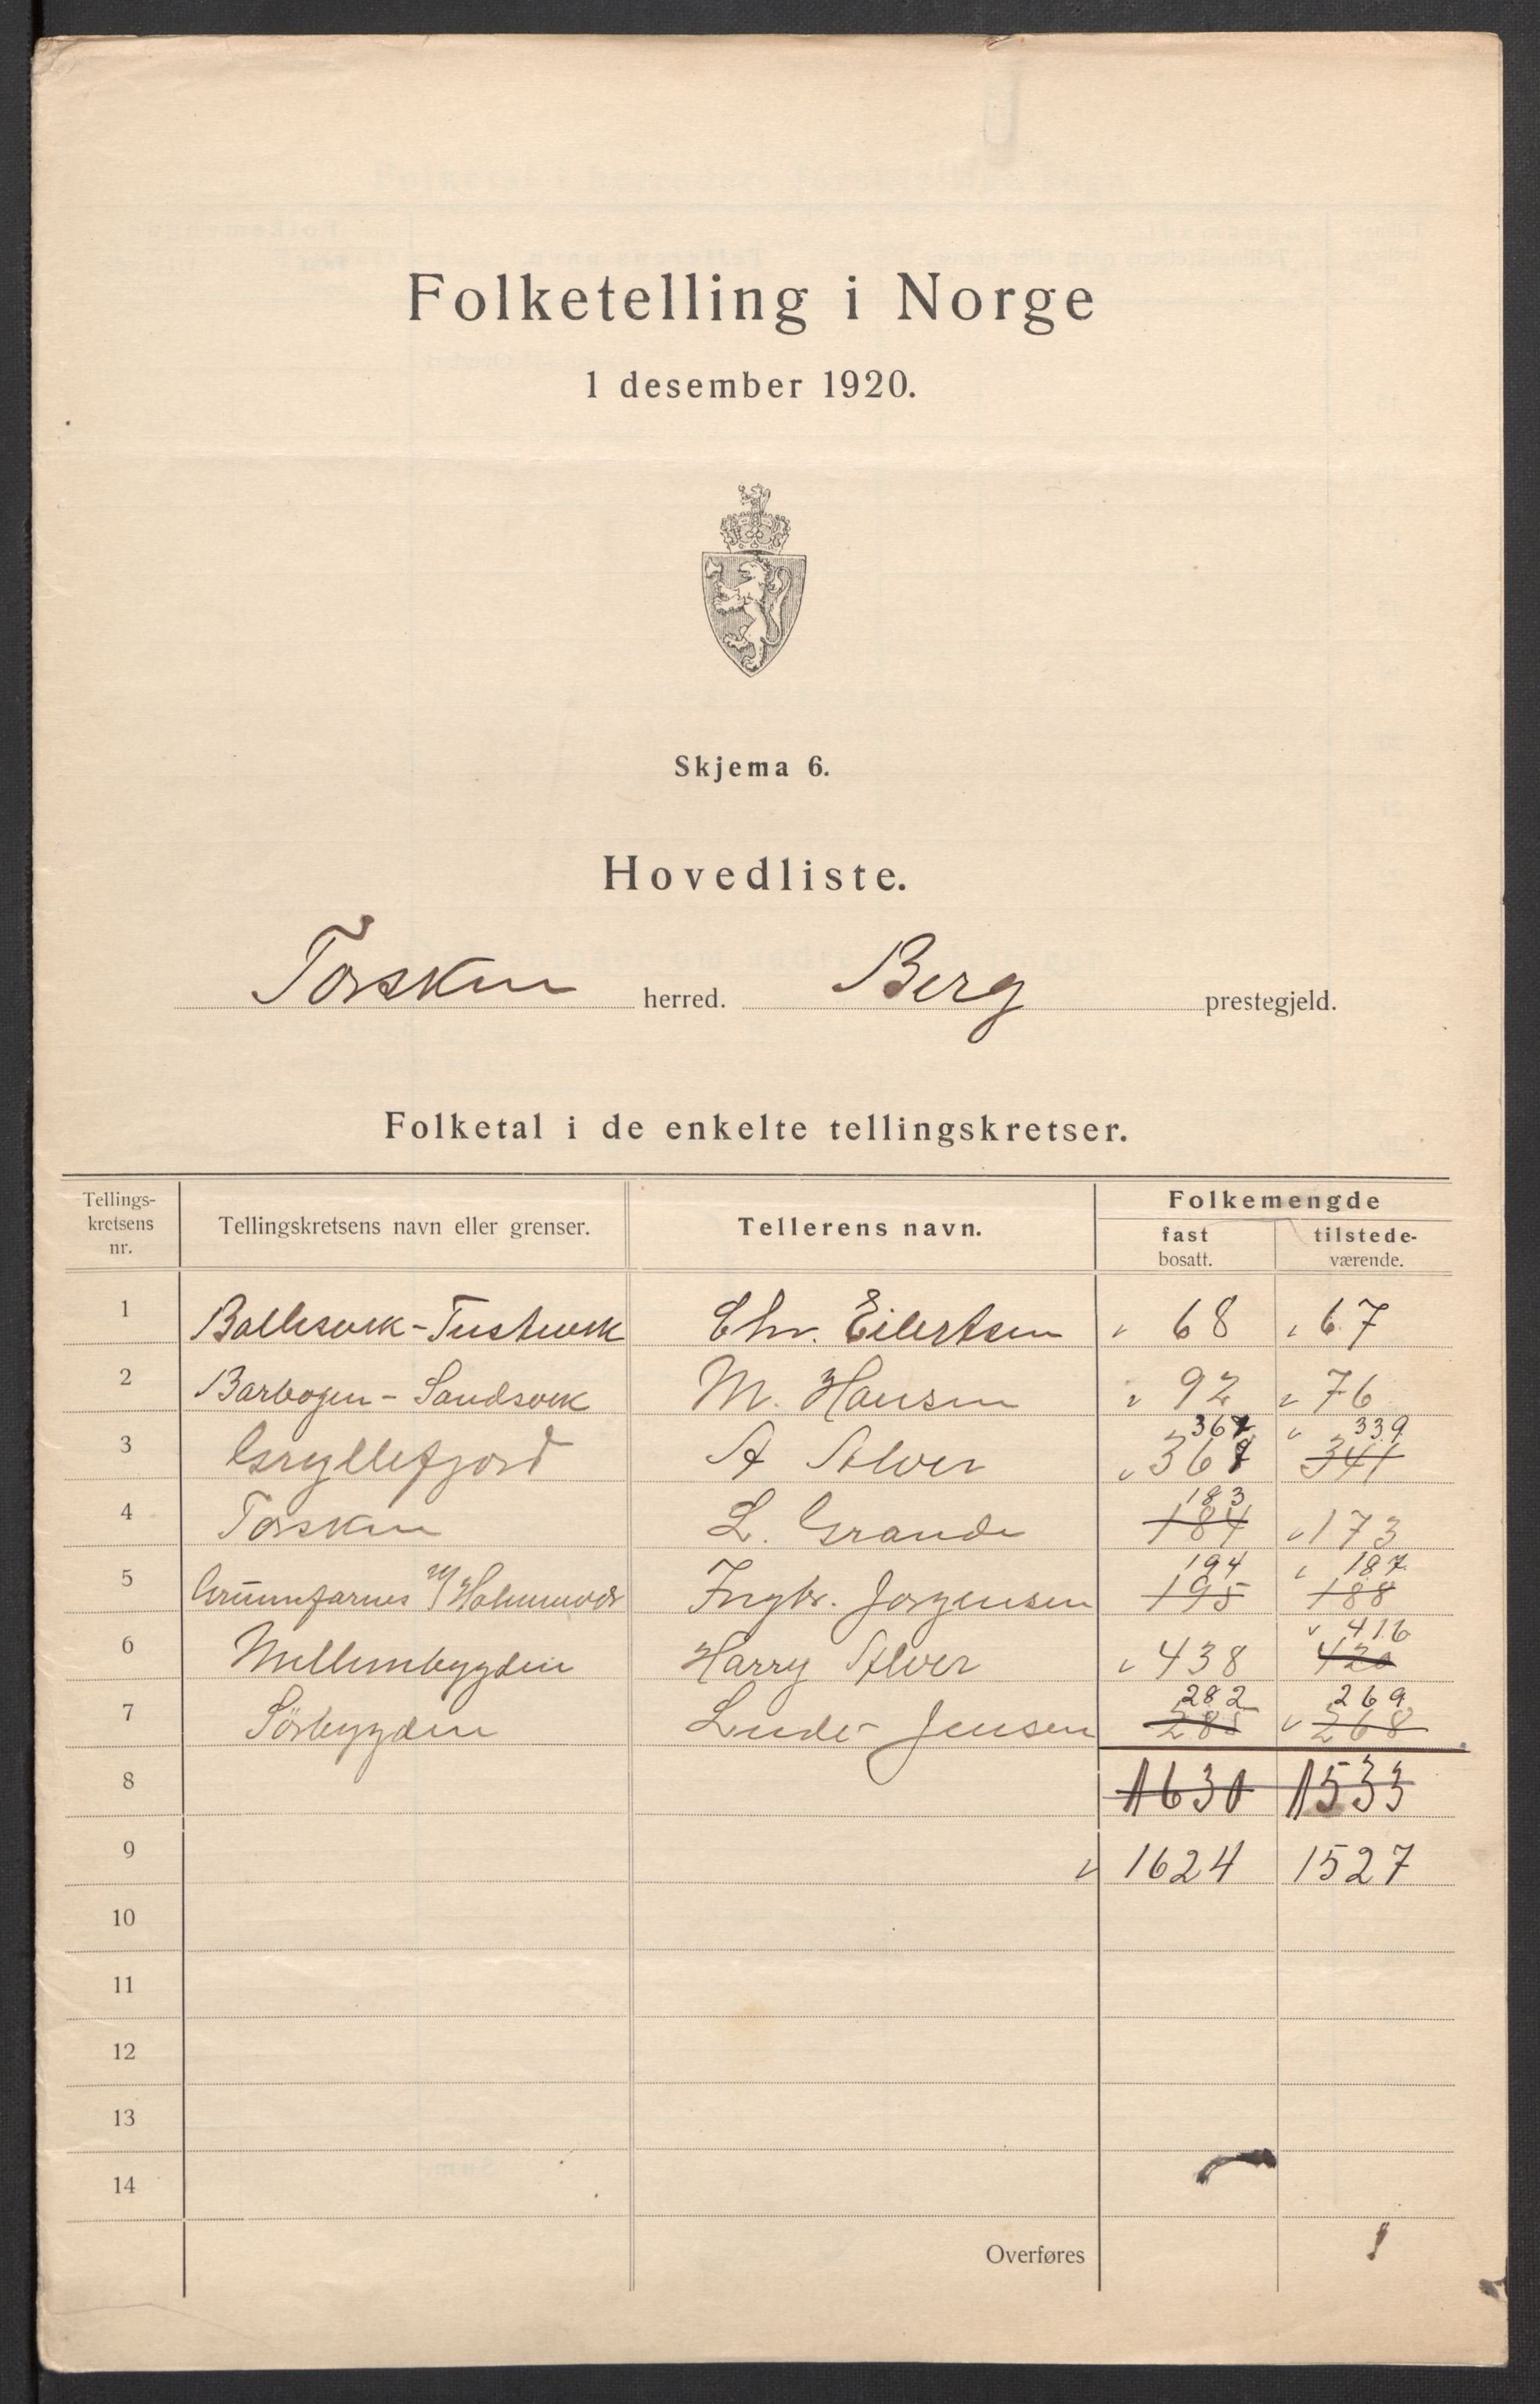 Folketelling i Norge
1 desember 1920.
Skjema 6.
Hovedliste.
Torsken herred. Berg prestegjeld.
Folketal i de enkelte tellingskretser.
Tellings-
kretsens
nr.
Tellingskretsens navn eller grenser.
Tellerens navn.
Folkemengde
fast
bosatt.
tilstede-
værende.
1 Ballesvik - Chr. Eilertsen 68 67
2 Barbogen - Sandsvik M. Hansen 92 76
367 339
3 Gryllefjord A Alver 367 341
183
4 Torsken L. Grande 184 173
194 187
5 Grunnfarnes m/ Ingbr. Jorgensen 195 188
416
6 Mellembygden Harry Alver 438 420
282 269
7 Sörbygden Jensen 285 268
8 1630 1533
9 1624 1527
10
11
12
13
14
Overføres